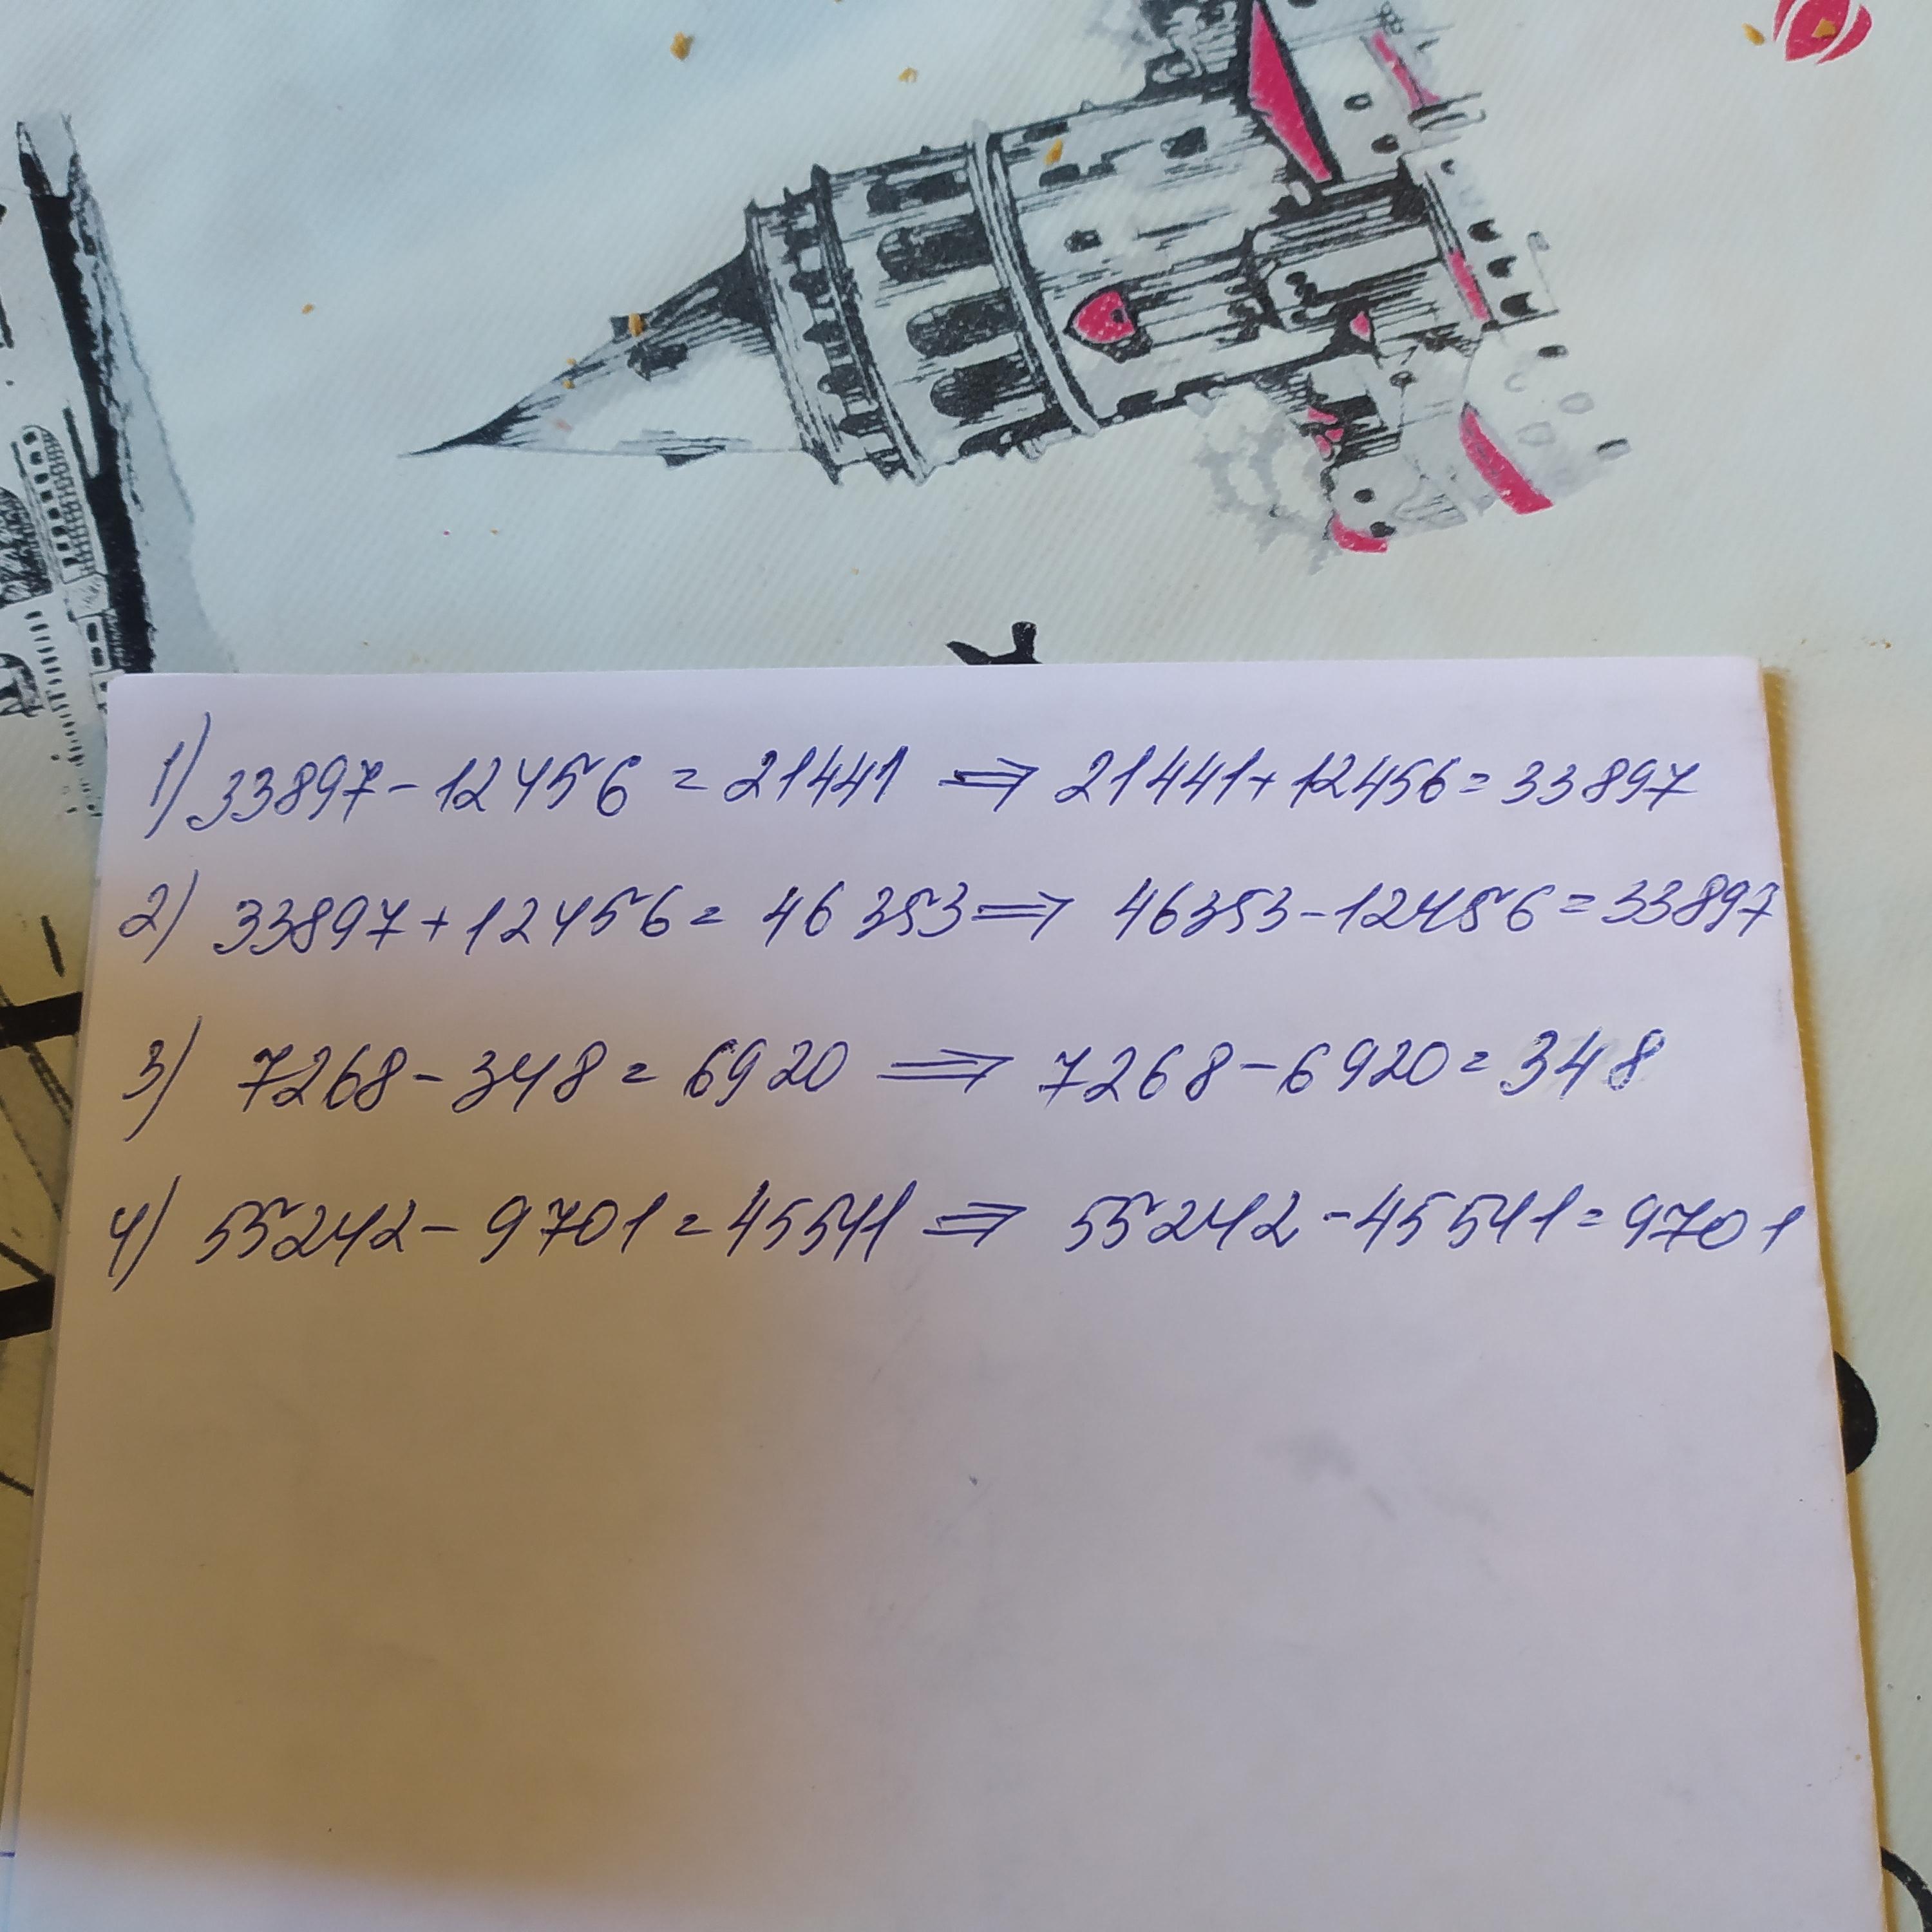 1) 33897 - 12456 = 21441 ⇒ 21441 + 12456 = 33897
2) 33897 + 12456 = 46353 ⇒ 46353 - 12456 = 33897
3) 7268 - 348 = 6920 ⇒ 7268 - 6920 = 348
4) 55242 - 9701 = 45541 ⇒ 55242 - 45541 = 9701